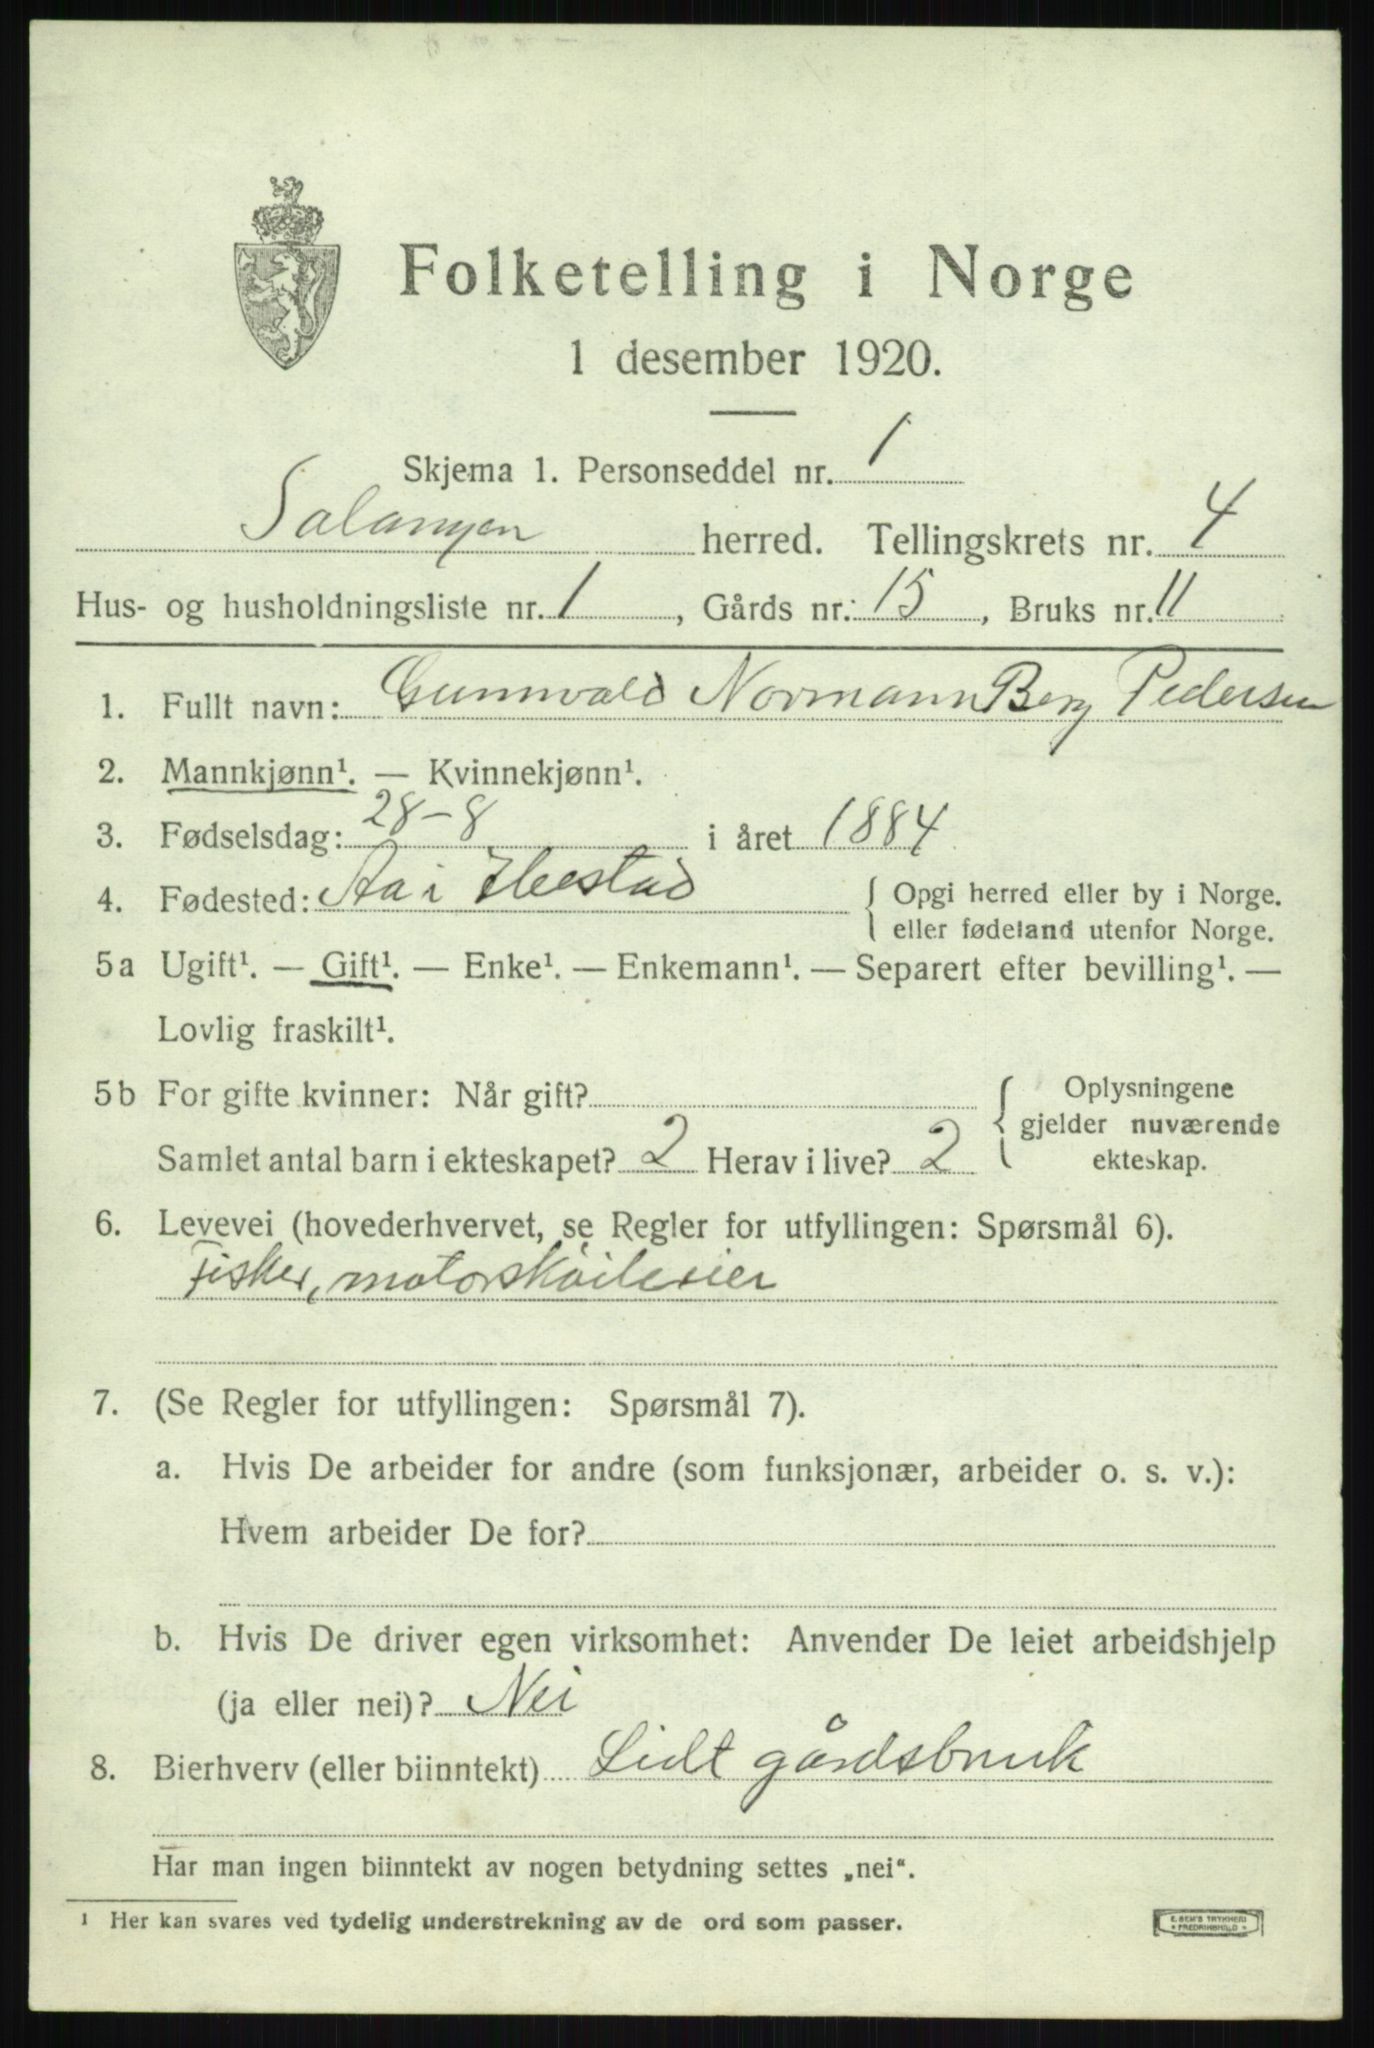 Folketelling i Norge
1 desember 1920.
Skjema 1. Personseddel nr. 1
Salangen herred. Tellingskrets nr. 4
Hus- og husholdningsliste nr. 1, Gårds nr. 15, Bruks nr. 11
1. Fullt navn: Gunnvald Normann Berg Pedersen
2. Mannkjønn¹. — Kvinnekjønn¹.
3. Fødselsdag: 28-8 i året 1884
4. Fødested: Aa i Ibestad { Opgi herred eller by i Norge.
eller fødeland utenfor Norge.
5a Ugift¹. — Gift¹. — Enke¹. — Enkemann¹. — Separert efter bevilling¹. —
Lovlig fraskilt¹.
5b For gifte kvinner: Når gift? { Oplysningene
gjelder nuværende
Samlet antal barn i ekteskapet? 2 Herav i live? 2 ekteskap.
6. Levevei (hovederhvervet, se Regler for utfyllingen: Spørsmål 6).
Fisker, motorsköiteeier
7. (Se Regler for utfyllingen: Spørsmål 7).
a. Hvis De arbeider for andre (som funksjonær, arbeider o. s. v.):
Hvem arbeider De for?
b. Hvis De driver egen virksomhet: Anvender De leiet arbeidshjelp
(ja eller nei)? Nei
8. Bierhverv (eller biinntekt) Lidt gårdsbruk
Har man ingen biinntekt av nogen betydning settes „nei“.
¹ Her kan svares ved tydelig understrekning av de ord som passer.
E. SEM'S TRYKKERI
FREDRIKSHALD